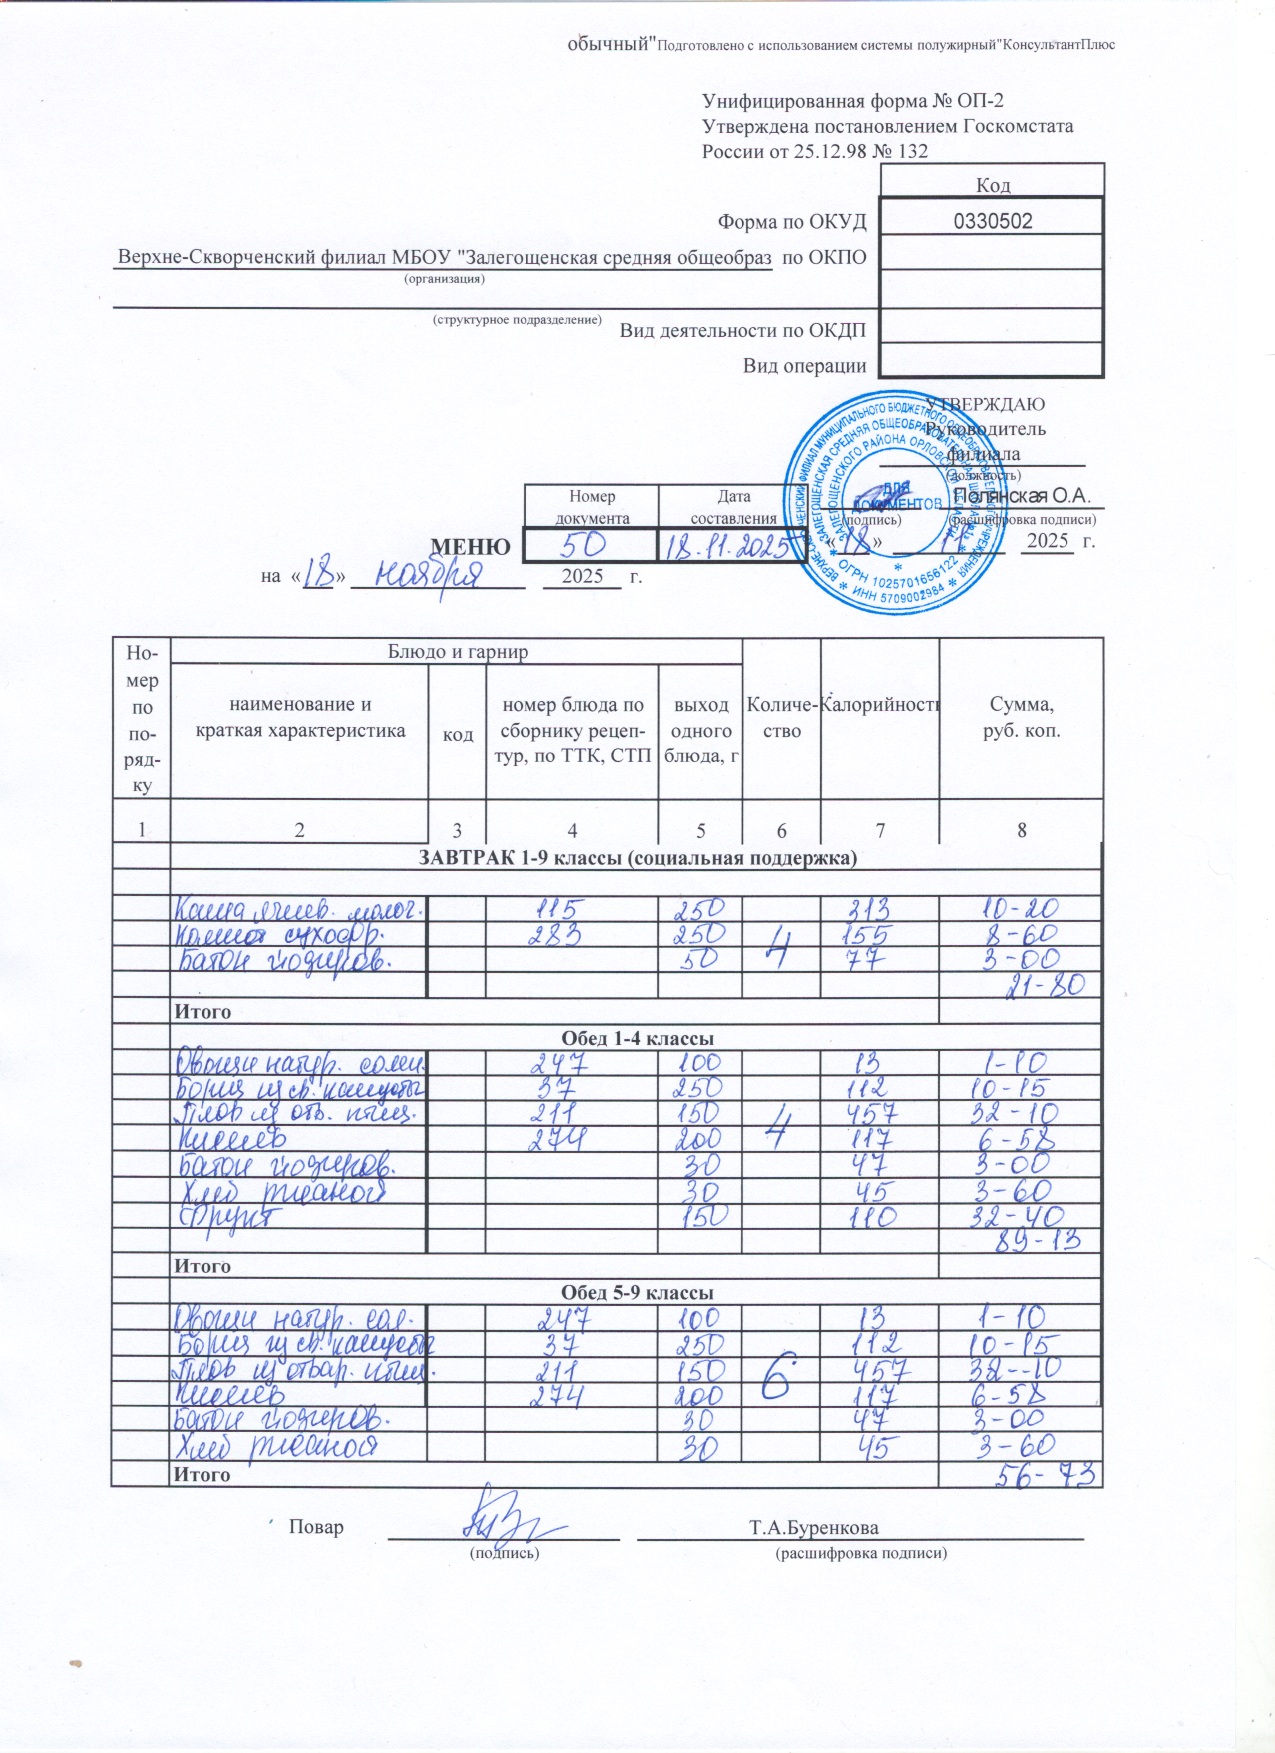 обычный"Подготовлено с использованием системы полужирный"КонсультантПлюс
Унифицированная форма № ОП-2
Утверждена постановлением Госкомстата
России от 25.12.98 № 132
Код
Форма по ОКУД 0330502
Верхне-Скворченский филиал МБОУ "Залегощенская средняя общеобраз по ОКПО
(организация)
(структурное подразделение)
Вид деятельности по ОКДП
Вид операции
УТВЕРЖДАЮ
Руководитель
филиала
(должность)
Полянская О.А.
(подпись) (расшифровка подписи)
«18» 2025 г.
ДЛЯ
ДОКУМЕНТОВ
ЗАЛЕГОЩЕНСКОГО РАЙОНА ОРЛОВСКОЙ ОБЛАСТИ
* ОГРН 1025701656122 *
* ИНН 5709002984 *
Номер документа Дата составления
МЕНЮ 50 18.11.2025
на «18» ноября 2025 г.
Но-мер по по-ряд-ку Блюдо и гарнир Количе-ство Калорийность Сумма, руб. коп.
наименование и краткая характеристика код номер блюда по сборнику рецеп-тур, по ТТК, СТП выход одного блюда, г
1 2 3 4 5 6 7 8
ЗАВТРАК 1-9 классы (социальная поддержка)
Каша ячнев. молоч. 115 250 313 10-20
Компот сухофр. 283 250 4 155 8-60
Батон йодиров. 50 77 3-00
21-80
Итого
Обед 1-4 классы
Овощи натур. солен. 247 100 13 1-10
Борщ из св. капусты 37 250 112 10-15
Плов из отв. птиц. 211 150 4 457 32-10
Кисель 274 200 117 6-58
Батон йодиров. 30 47 3-00
Хлеб ржаной 30 45 3-60
Фрукт 150 110 32-40
89-13
Итого
Обед 5-9 классы
Овощи натур. сол. 247 100 13 1-10
Борщ из св. капусты 37 250 112 10-15
Плов из отвар. птиц. 211 150 6 457 32--10
Кисель 274 200 117 6-58
Батон йодиров. 30 47 3-00
Хлеб ржаной 30 45 3-60
Итого 56-73
Повар Т.А.Буренкова
(подпись) (расшифровка подписи)